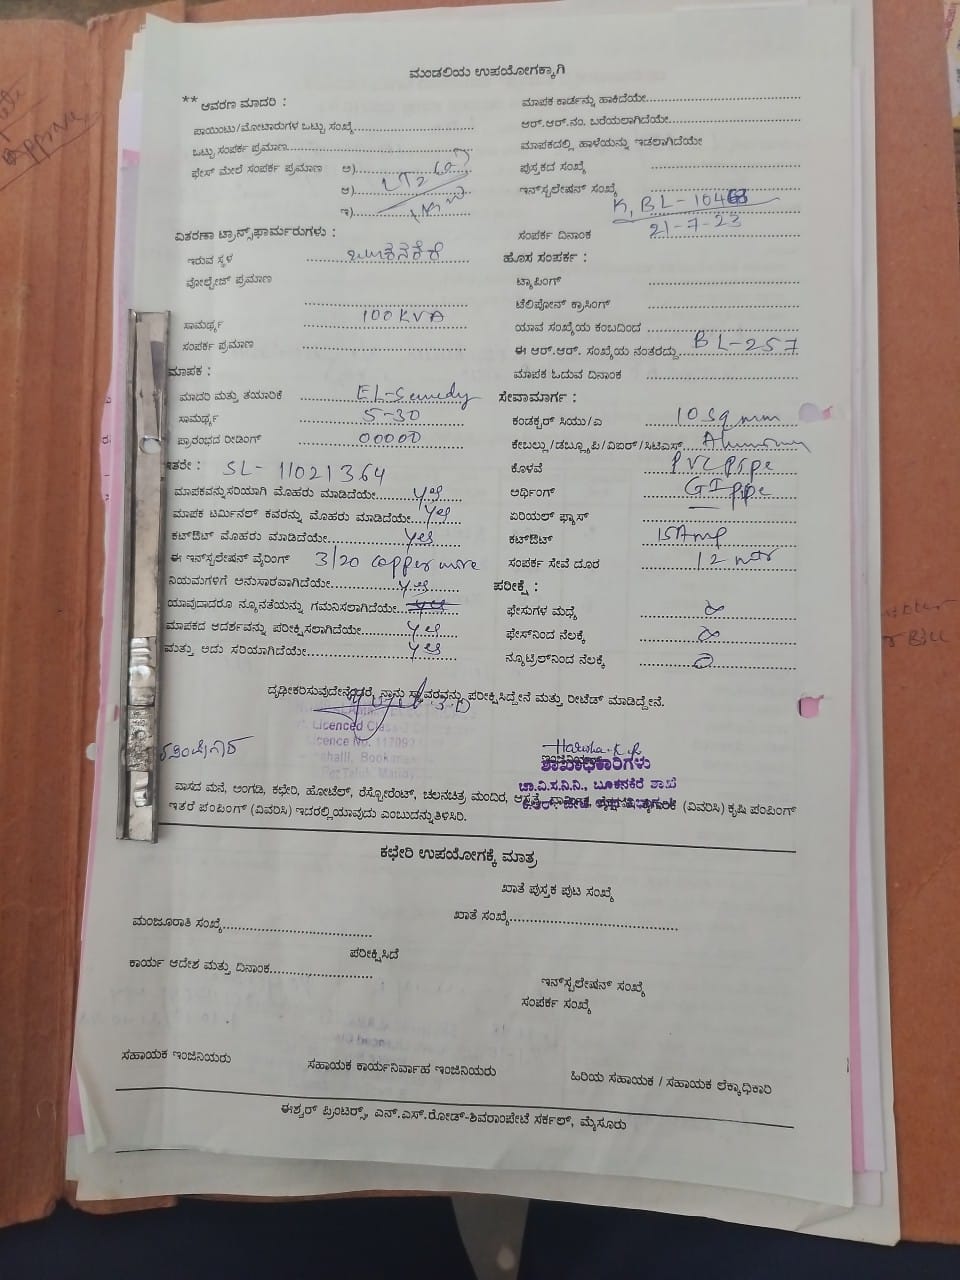 ಮಂಡಲಿಯ ಉಪಯೋಗಕ್ಕಾಗಿ
** ಆವರಣ ಮಾದರಿ :
ಪಾಯಿಂಟು/ಮೋಟಾರುಗಳ ಒಟ್ಟು ಸಂಖ್ಯೆ
ಒಟ್ಟು ಸಂಪರ್ಕ ಪ್ರಮಾಣ
ಫೇಸ್ ಮೇಲೆ ಸಂಪರ್ಕ ಪ್ರಮಾಣ ಅ)
ಆ) LT2
ಇ)
ವಿತರಣಾ ಟ್ರಾನ್ಸ್‌ಫಾರ್ಮರುಗಳು :
ಇರುವ ಸ್ಥಳ
ವೋಲ್ಟೇಜ್ ಪ್ರಮಾಣ
ಸಾಮರ್ಥ್ಯ 100KVA
ಸಂಪರ್ಕ ಪ್ರಮಾಣ
ಮಾಪಕ :
ಮಾದರಿ ಮತ್ತು ತಯಾರಿಕೆ
ಸಾಮರ್ಥ್ಯ 5-30
ಪ್ರಾರಂಭದ ರೀಡಿಂಗ್ 00000
ಇತರೇ : SL- 11021364
ಮಾಪಕವನ್ನು ಸರಿಯಾಗಿ ಮೊಹರು ಮಾಡಿದೆಯೇ yes
ಮಾಪಕ ಟರ್ಮಿನಲ್ ಕವರನ್ನು ಮೊಹರು ಮಾಡಿದೆಯೇ yes
ಕಟ್‌ಔಟ್ ಮೊಹರು ಮಾಡಿದೆಯೇ yes
ಈ ಇನ್‌ಸ್ಟಲೇಷನ್ ವೈರಿಂಗ್ 3/20 copper wire
ನಿಯಮಗಳಿಗೆ ಅನುಸಾರವಾಗಿದೆಯೇ yes
ಯಾವುದಾದರೂ ನ್ಯೂನತೆಯನ್ನು ಗಮನಿಸಲಾಗಿದೆಯೇ
ಮಾಪಕದ ಆದರ್ಶವನ್ನು ಪರೀಕ್ಷಿಸಲಾಗಿದೆಯೇ yes
ಮತ್ತು ಅದು ಸರಿಯಾಗಿದೆಯೇ yes
ಮಾಪಕ ಕಾರ್ಡನ್ನು ಹಾಕಿದೆಯೇ
ಆರ್.ಆರ್.ನಂ. ಬರೆಯಲಾಗಿದೆಯೇ
ಮಾಪಕದಲ್ಲಿ ಹಾಳೆಯನ್ನು ಇಡಲಾಗಿದೆಯೇ
ಪುಸ್ತಕದ ಸಂಖ್ಯೆ
ಇನ್‌ಸ್ಟಲೇಷನ್ ಸಂಖ್ಯೆ
ಸಂಪರ್ಕ ದಿನಾಂಕ 21-7-23
ಹೊಸ ಸಂಪರ್ಕ :
ಟ್ಯಾಪಿಂಗ್
ಟೆಲಿಫೋನ್ ಕ್ರಾಸಿಂಗ್
ಯಾವ ಸಂಖ್ಯೆಯ ಕಂಬದಿಂದ
ಈ ಆರ್.ಆರ್. ಸಂಖ್ಯೆಯ ನಂತರದ್ದು BL-257
ಮಾಪಕ ಓದುವ ದಿನಾಂಕ
ಸೇವಾಮಾರ್ಗ :
ಕಂಡಕ್ಟರ್ ಸಿಯು/ಎ 10 Sq mm
ಕೇಬಲ್ಲು/ಡಬ್ಲ್ಯೂಪಿ/ವಿಐಆರ್/ಸಿಟಿಎಸ್
ಕೊಳವೆ PVC Pipe
ಅರ್ಥಿಂಗ್ GI pipe
ಏರಿಯಲ್ ಫ್ಯೂಸ್
ಕಟ್‌ಔಟ್ 15Amp
ಸಂಪರ್ಕ ಸೇವೆ ದೂರ 12 mtr
ಪರೀಕ್ಷೆ :
ಫೇಸುಗಳ ಮಧ್ಯೆ ∝
ಫೇಸ್‌ನಿಂದ ನೆಲಕ್ಕೆ ∝
ನ್ಯೂಟ್ರಲ್‌ನಿಂದ ನೆಲಕ್ಕೆ 0
ದೃಢೀಕರಿಸುವುದೇನೆಂದರೆ, ನಾನು ಸ್ಥಾವರವನ್ನು ಪರೀಕ್ಷಿಸಿದ್ದೇನೆ ಮತ್ತು ರೀಟೆಡ್ ಮಾಡಿದ್ದೇನೆ.
Harsha.K.R
ಶಾಖಾಧಿಕಾರಿಗಳು
ಚಾ.ವಿ.ಸ.ನಿ.ನಿ., ಬೂಕನಕೆರೆ ಶಾಖೆ
ವಾಸದ ಮನೆ, ಅಂಗಡಿ, ಕಛೇರಿ, ಹೋಟೆಲ್, ರೆಸ್ಟೋರೆಂಟ್, ಚಲನಚಿತ್ರ ಮಂದಿರ, (ವಿವರಿಸಿ) ಕೃಷಿ ಪಂಪಿಂಗ್
ಇತರೆ ಪಂಪಿಂಗ್ (ವಿವರಿಸಿ) ಇದರಲ್ಲಿ ಯಾವುದು ಎಂಬುದನ್ನು ತಿಳಿಸಿರಿ.
ಕಛೇರಿ ಉಪಯೋಗಕ್ಕೆ ಮಾತ್ರ
ಖಾತೆ ಪುಸ್ತಕ ಪುಟ ಸಂಖ್ಯೆ
ಮಂಜೂರಾತಿ ಸಂಖ್ಯೆ ಖಾತೆ ಸಂಖ್ಯೆ
ಪರೀಕ್ಷಿಸಿದೆ
ಕಾರ್ಯ ಆದೇಶ ಮತ್ತು ದಿನಾಂಕ
ಇನ್‌ಸ್ಟಲೇಷನ್ ಸಂಖ್ಯೆ
ಸಂಪರ್ಕ ಸಂಖ್ಯೆ
ಸಹಾಯಕ ಇಂಜಿನಿಯರು ಸಹಾಯಕ ಕಾರ್ಯನಿರ್ವಾಹ ಇಂಜಿನಿಯರು ಹಿರಿಯ ಸಹಾಯಕ / ಸಹಾಯಕ ಲೆಕ್ಕಾಧಿಕಾರಿ
ಈಶ್ವರ್ ಪ್ರಿಂಟರ್ಸ್, ಎನ್.ಎಸ್.ರೋಡ್-ಶಿವರಾಂಪೇಟೆ ಸರ್ಕಲ್, ಮೈಸೂರು